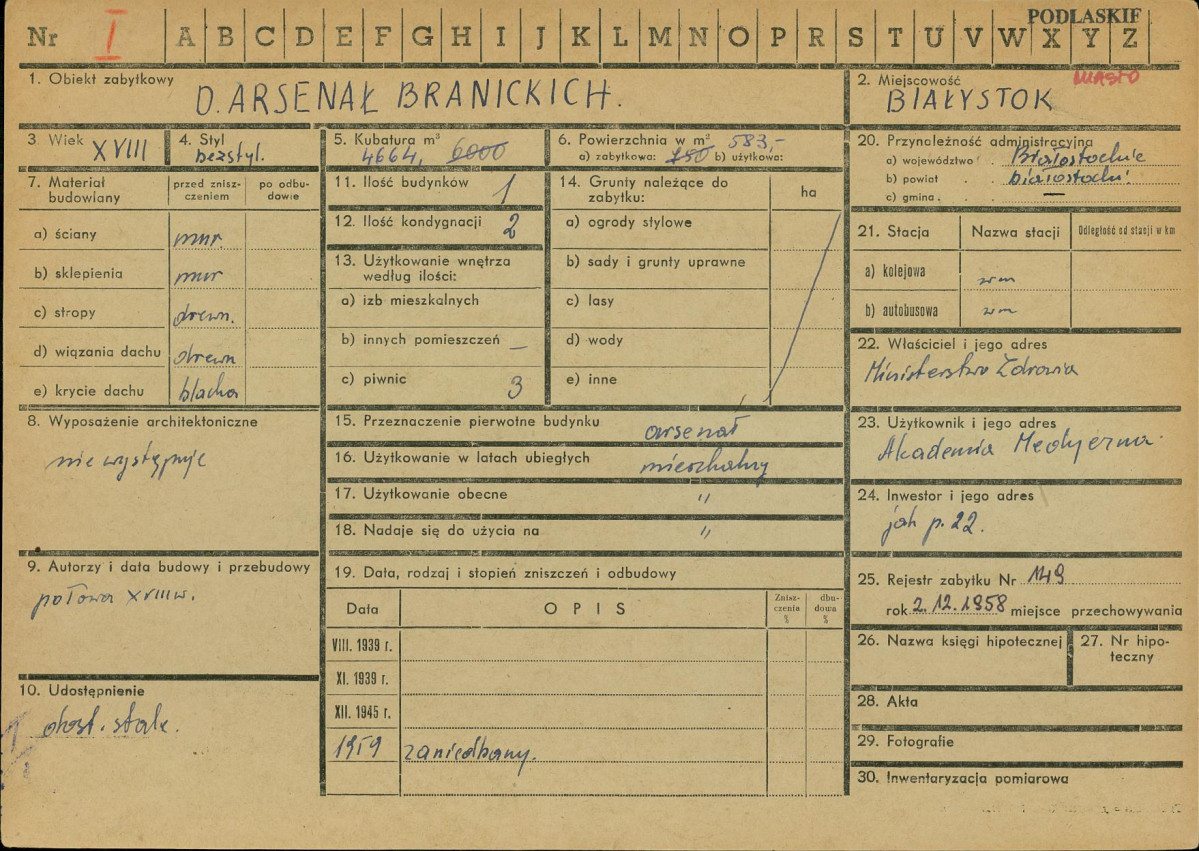 PODLASKIE
Nr I A B C D E F G H I J K L M N O P R S T U V W X Y Z
1. Obiekt zabytkowy
D. ARSENAŁ BRANICKICH.
2. Miejscowość MIASTO
BIAŁYSTOK
3. Wiek XVIII
4. Styl
bezstyl.
5. Kubatura m³
4664, 6000
6. Powierzchnia w m² 583,-
a) zabytkowa: 750 b) użytkowa:
7. Materiał budowlany
przed zniszczeniem
po odbudowie
a) ściany mur.
b) sklepienia mur
c) stropy drewn.
d) wiązania dachu drewn
e) krycie dachu blacha
8. Wyposażenie architektoniczne
nie występuje
9. Autorzy i data budowy i przebudowy
połowa XVIII w.
10. Udostępnienie
dost. stale.
11. Ilość budynków 1
12. Ilość kondygnacji 2
13. Użytkowanie wnętrza
według ilości:
a) izb mieszkalnych
b) innych pomieszczeń —
c) piwnic 3
14. Grunty należące do
zabytku:
ha
a) ogrody stylowe
b) sady i grunty uprawne
c) lasy
d) wody
e) inne
15. Przeznaczenie pierwotne budynku arsenał
16. Użytkowanie w latach ubiegłych mieszkalny
17. Użytkowanie obecne "
18. Nadaje się do użycia na "
19. Data, rodzaj i stopień zniszczeń i odbudowy
Data OPIS Zniszczenia % dbudowa %
VIII. 1939 r.
XI. 1939 r.
XII. 1945 r.
1959 zaniedbany.
20. Przynależność administracyjna
a) województwo Białostockie
b) powiat białostocki
c) gmina —
21. Stacja Nazwa stacji Odległość od stacji w km
a) kolejowa wm
b) autobusowa wm
22. Właściciel i jego adres
Ministerstwo Zdrowia
23. Użytkownik i jego adres
Akademia Medyczna
24. Inwestor i jego adres
jak p. 22.
25. Rejestr zabytku Nr 149
rok 2.12.1958 miejsce przechowywania
26. Nazwa księgi hipotecznej
27. Nr hipoteczny
28. Akta
29. Fotografie
30. Inwentaryzacja pomiarowa